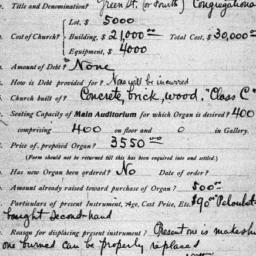 Title and Denomination? Green St. (or Fourth) Congregational
Lot, $ 5000
Cost of Church? Building, $ 21,000 Total Cost, $ 30,000
Equipment, $ 4000
Amount of Debt? None
How is Debt provided for? Now yet to be incurred
Church built of? Concrete, brick, wood. "Class C"
Seating Capacity of Main Auditorium for which Organ is desired? 400
comprising 400 on floor and 0 in Gallery.
Price of proposed Organ? 3550.00
(Form should not be returned till this has been inquired into and settled.)
Has new Organ been ordered? No Date of order?
Amount already raised toward purchase of Organ? 500.00
Particulars of present Instrument, Age, Cost Price, Etc. $90.00 Peloubet
bought second-hand
Reason for displacing present instrument? Present one is makeshift
one burned can be properly replaced